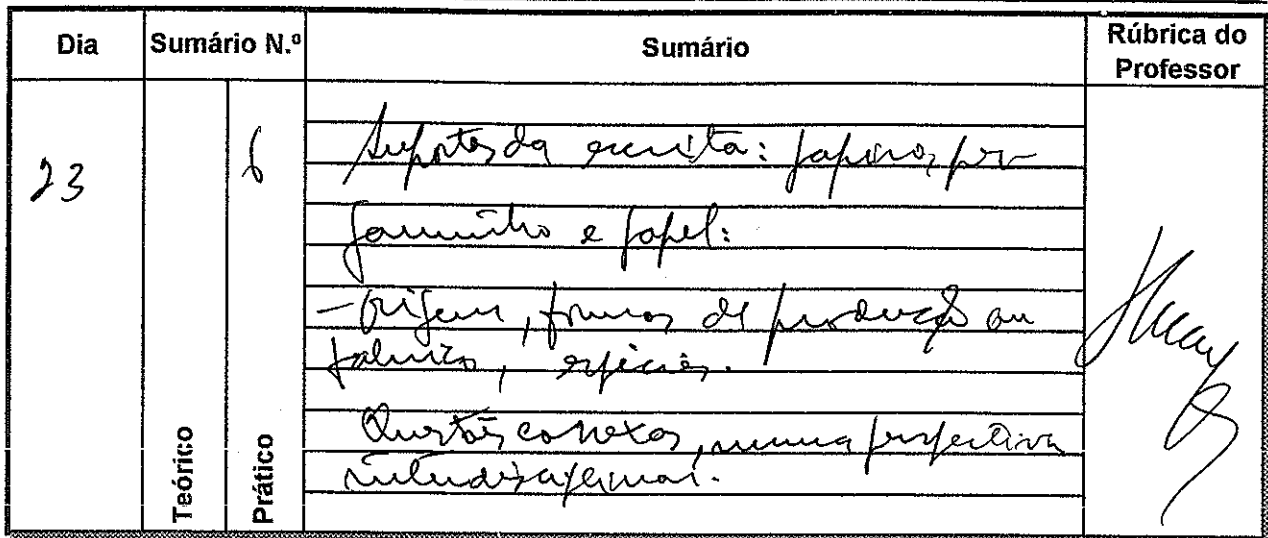 Dia Sumário N.º Sumário Rúbrica do Professor
23 6 Suportes da escrita: papiro, per-
gaminho e papel:
- Origem, formas de produção ou
fabrico, espécies.
Questões conexas, numa perspectiva
interdisciplinar.
Teórico Prático